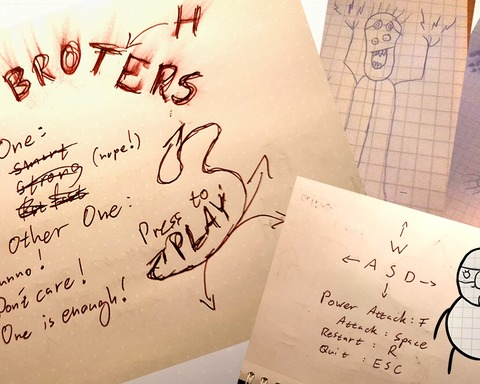 H
BROTERS
One:
smart
strong (nope!)
Other One:
Dunno!
Don't care!
One is enough!
Press to
"PLAY"
W
A S D
Power Attack: F
Attack: Space
Restart: R
Quit: ESC